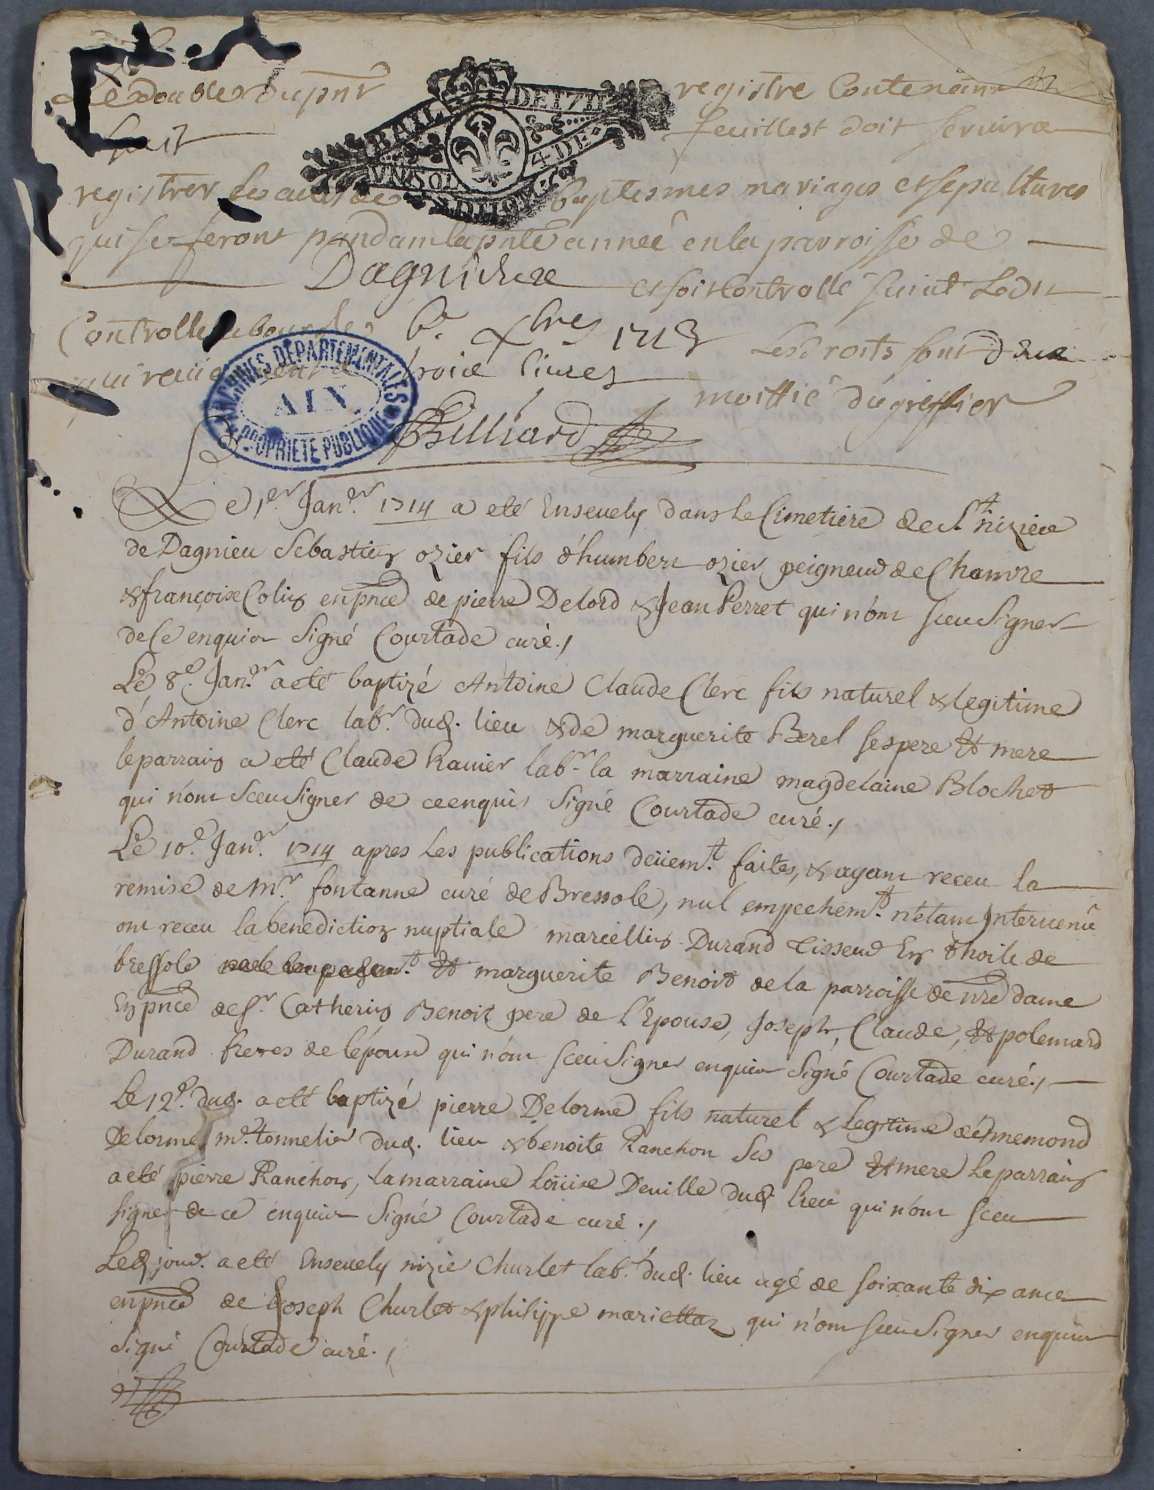 Le double du pnt registre Contenant
huit feuillest doit servir a
registrer les actes de baptesmes mariages et sepultures
qui se feront pandam la pnte année en la parroisse de
Dagnieu et soit Controllé suivt Ledit
Controlle a bourg le Xbres 1713 Les droits sont deue
qui revienent a troie livres moittié du greffier
Billiard
BAIL DE 1711
UN SOL 4 DE
ARCHIVES DÉPARTEMENTALES
AIN
PROPRIÉTÉ PUBLIQUE
Le 1er Janer 1714 a eté Ensevely dans le Cimetiere de St nizier
de Dagnieu Sebastien ozier fils d'humbert ozier peigneur de Chanvre
& françoise Colin en pnce de pierre Delord & Jean Perret qui n'ont sceu signer
de Ce enquis Signé Courtade curé./
Le 8e Janer a eté baptizé Antoine Claude Clerc fils naturel & legitime
d'Antoine Clerc labr dud. lieu & de marguerite Berel ses pere et mere
le parrain a eté Claude Ravier labr la marraine magdelaine Blochet
qui n'ont sceu signer de ce enquis Signé Courtade curé./
Le 10e Janer 1714 apres les publications deüemt faites, & ayant receu la
remise de mr fontanne curé de Bressole, nul empechemt n'etant Intervenu
ont receu la benediction nuptiale marcellin Durand tisseur En thoile de
bressole et marguerite Benoit de la parroisse de nre dame
En pnce de Sr Catherin Benoit pere de l'Epouse, Joseph, Claude, et polemard
Durand freres de l'epoux qui n'ont sceu signer enquis Signé Courtade curé./
Le 12e dud. a eté baptizé pierre Delorme fils naturel & legitime d'ennemond
Delorme me tonnelier dud. lieu & benoite Ranchon Ses pere et mere le parrain
a eté pierre Ranchon, la marraine Loüise Deville dud. lieu qui n'ont sceu
signer de ce enquis Signé Courtade curé./
Led. jour a eté Ensevely nizié Churlet labr dud. lieu agé de soixante dix ance
en pnce de Joseph Churlet & philippe mariettaz qui n'ont sceu signer enquis
signé Courtade curé./